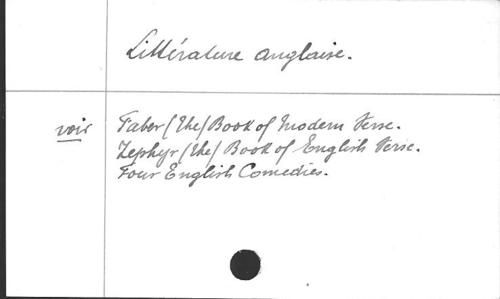 Littérature anglaise.
voir Faber (the) Book of Modern Verse.
Zephyr (the) Book of English Verse.
Four English Comedies.